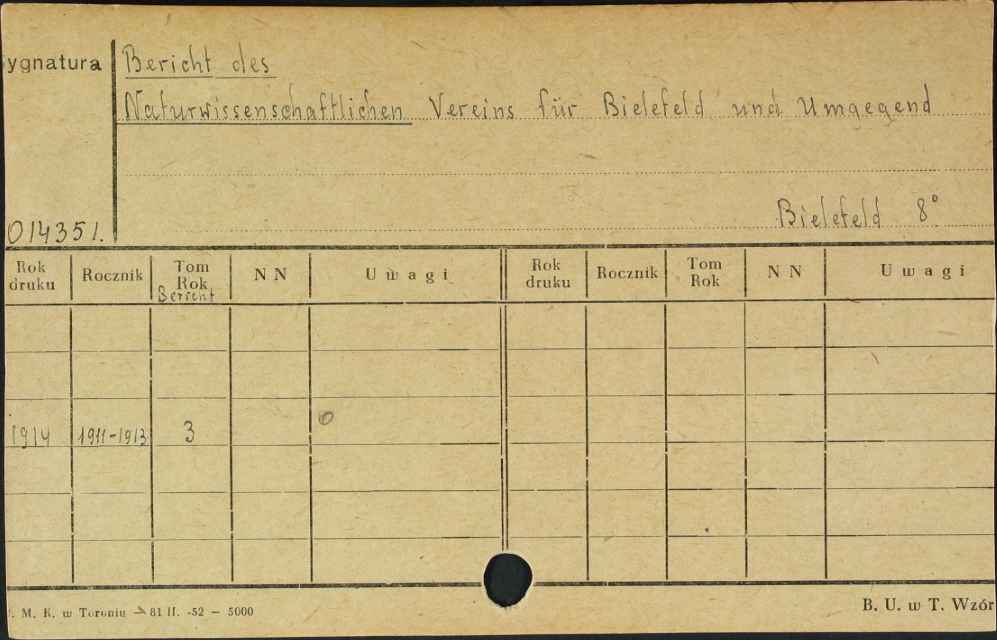 ygnatura Bericht des
Naturwissenschaftlichen Vereins für Bielefeld und Umgegend
Bielefeld 8°
014351.
Rok druku Rocznik Tom Rok NN Uwagi Rok druku Rocznik Tom Rok NN Uwagi
Bericht
1914 1911-1913 3 0
. M. K. w Toruniu 81 II. -52 — 5000
B. U. w T. Wzór